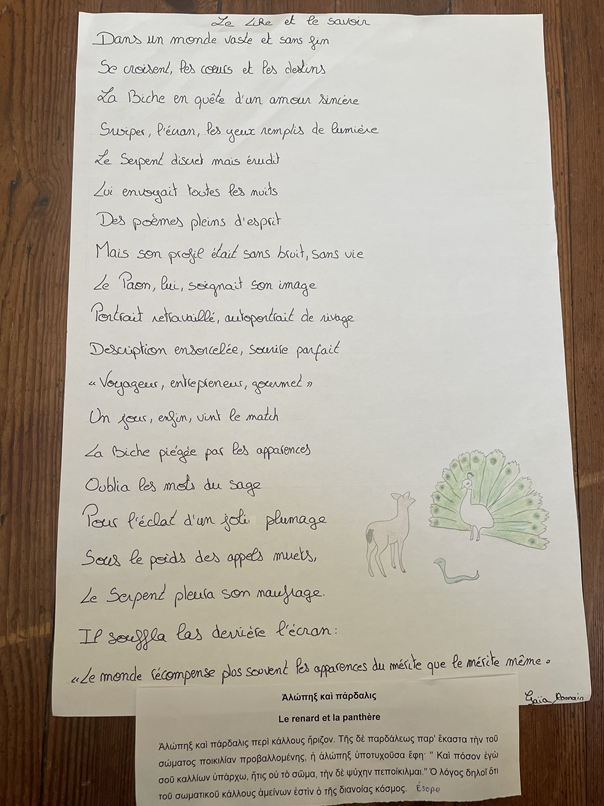 Le Lire et le savoir
Dans un monde vaste et sans fin
Se croisent, les cœurs et les destins
La Biche en quête d'un amour sincère
Swiper, l'écran, les yeux remplis de lumière
Le Serpent discret mais érudit
Lui envoyait toutes les nuits
Des poèmes pleins d'esprit
Mais son profil était sans bruit, sans vie
Le Paon, lui, soignait son image
Portrait retravaillé, autoportrait de rivage
Description ensorcelée, sourire parfait
« Voyageur, entrepreneur, gourmet »
Un jour, enfin, vint le match
La Biche piégée par les apparences
Oublia les mots du sage
Pour l'éclat d'un joli plumage
Sous le poids des appels muets,
Le Serpent pleura son naufrage.
Il souffla las derrière l'écran :
« Le monde récompense plus souvent les apparences du mérite que le mérite même »
Gaïa Romain
Ἀλώπηξ καὶ πάρδαλις
Le renard et la panthère
Ἀλώπηξ καὶ πάρδαλις περὶ κάλλους ἤριζον. Τῆς δὲ παρδάλεως παρ' ἕκαστα τὴν τοῦ
σώματος ποικιλίαν προβαλλομένης, ἡ ἀλώπηξ ὑποτυχοῦσα ἔφη· " Καὶ πόσον ἐγὼ
σοῦ καλλίων ὑπάρχω, ἥτις οὐ τὸ σῶμα, τὴν δὲ ψύχην πεποίκιλμαι." Ὁ λόγος δηλοῖ ὅτι
τοῦ σωματικοῦ κάλλους ἀμείνων ἐστὶν ὁ τῆς διανοίας κόσμος. Ésope